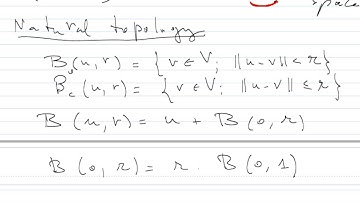 space
Natural topology
B(u, r) = { v ∈ V; ||u-v|| < r }
B_c(u, r) = { v ∈ V; ||u-v|| ≤ r }
B(u, r) = u + B(0, r)
B(0, r) = r. B(0, 1)